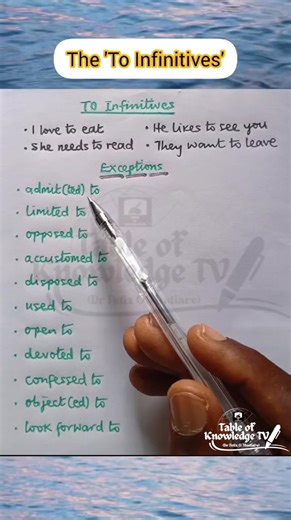 The 'To Infinitives'
To Infinitives
• I love to eat • He likes to see you
• She needs to read • They want to leave
Exceptions
• admit(ted) to
• limited to
• opposed to
• accustomed to
• disposed to
• used to
• open to
• devoted to
• confessed to
• object(ed) to
• look forward to
Table of
Knowledge TV
Table of
Knowledge TV